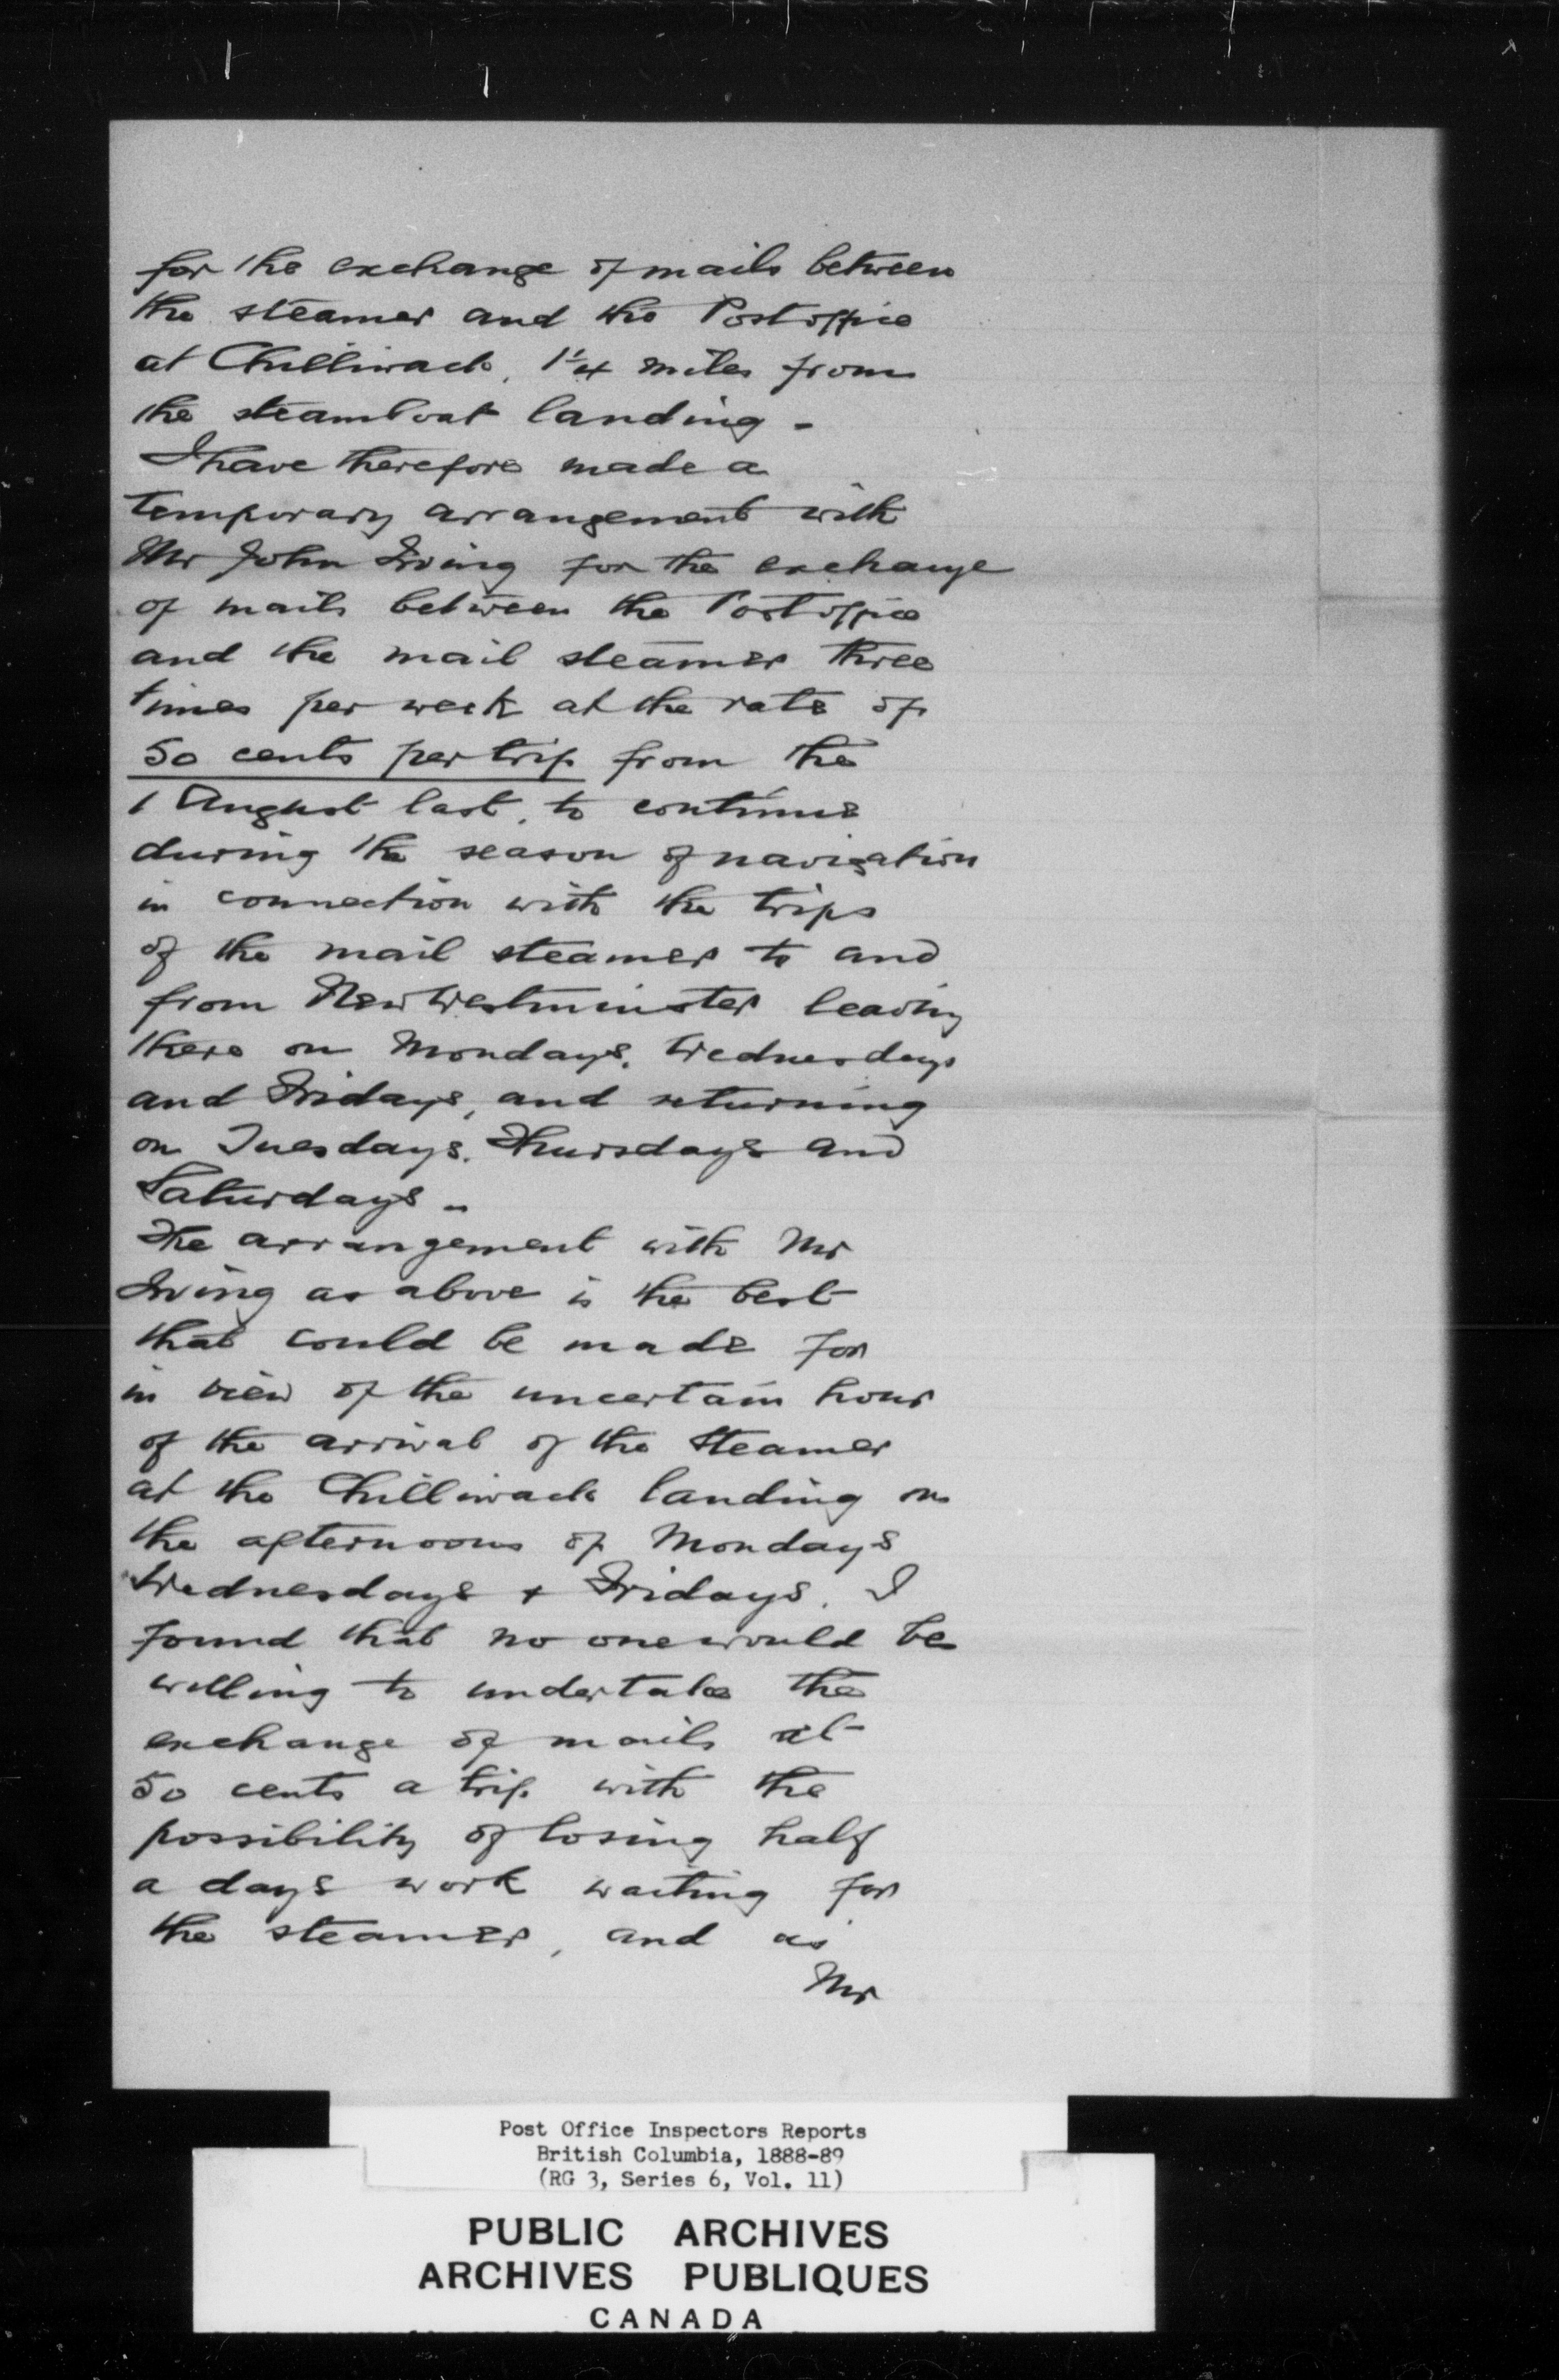 for the exchange of mails between
the steamer and the Postoffice
at Chilliwack, 1 1/4 miles from
the steamboat landing -
I have therefore made a
temporary arrangement with
Mr John Irving for the exchange
of mails between the Postoffice
and the mail steamer three
times per week at the rate of
50 cents per trip from the
1 August last, to continue
during the season of navigation
in connection with the trips
of the mail steamer to and
from New Westminster leaving
there on Mondays, Wednesdays
and Fridays, and returning
on Tuesdays, Thursdays and
Saturdays -
The arrangement with Mr
Irving as above is the best
that could be made for
in view of the uncertain hour
of the arrival of the steamer
at the Chilliwack landing on
the afternoons of Mondays
Wednesdays + Fridays, I
found that no one would be
willing to undertake the
exchange of mails at
50 cents a trip with the
possibility of losing half
a days work waiting for
the steamer, and as
Mr
Post Office Inspectors Reports
British Columbia, 1888-89
(RG 3, Series 6, Vol. 11)
PUBLIC ARCHIVES
ARCHIVES PUBLIQUES
CANADA